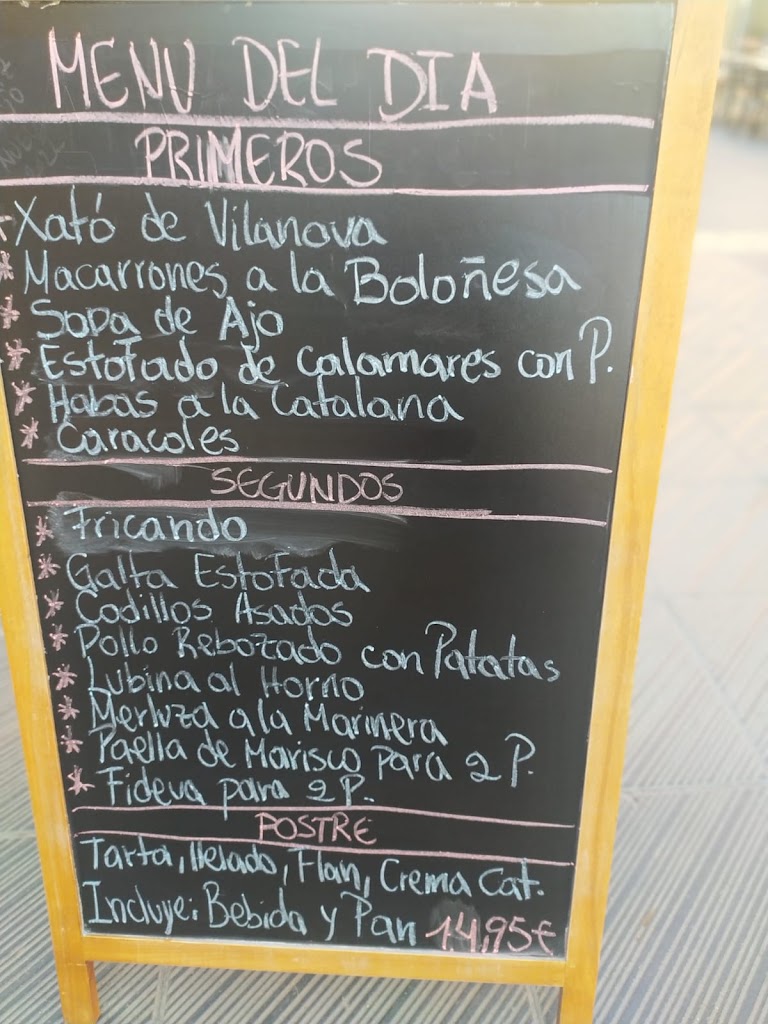 MENU DEL DIA
PRIMEROS
* Xató de Vilanova
* Macarrones a la Boloñesa
* Sopa de Ajo
* Estofado de calamares con P.
* Habas a la Catalana
* Caracoles
SEGUNDOS
* Fricando
* Galta Estofada
* Codillos Asados
* Pollo Rebozado con Patatas
* Lubina al Horno
* Merluza a la Marinera
* Paella de Marisco para 2 P.
* Fideua para 2 P.
POSTRE
Tarta, Helado, Flan, Crema Cat.
Incluye: Bebida y Pan 14,95€